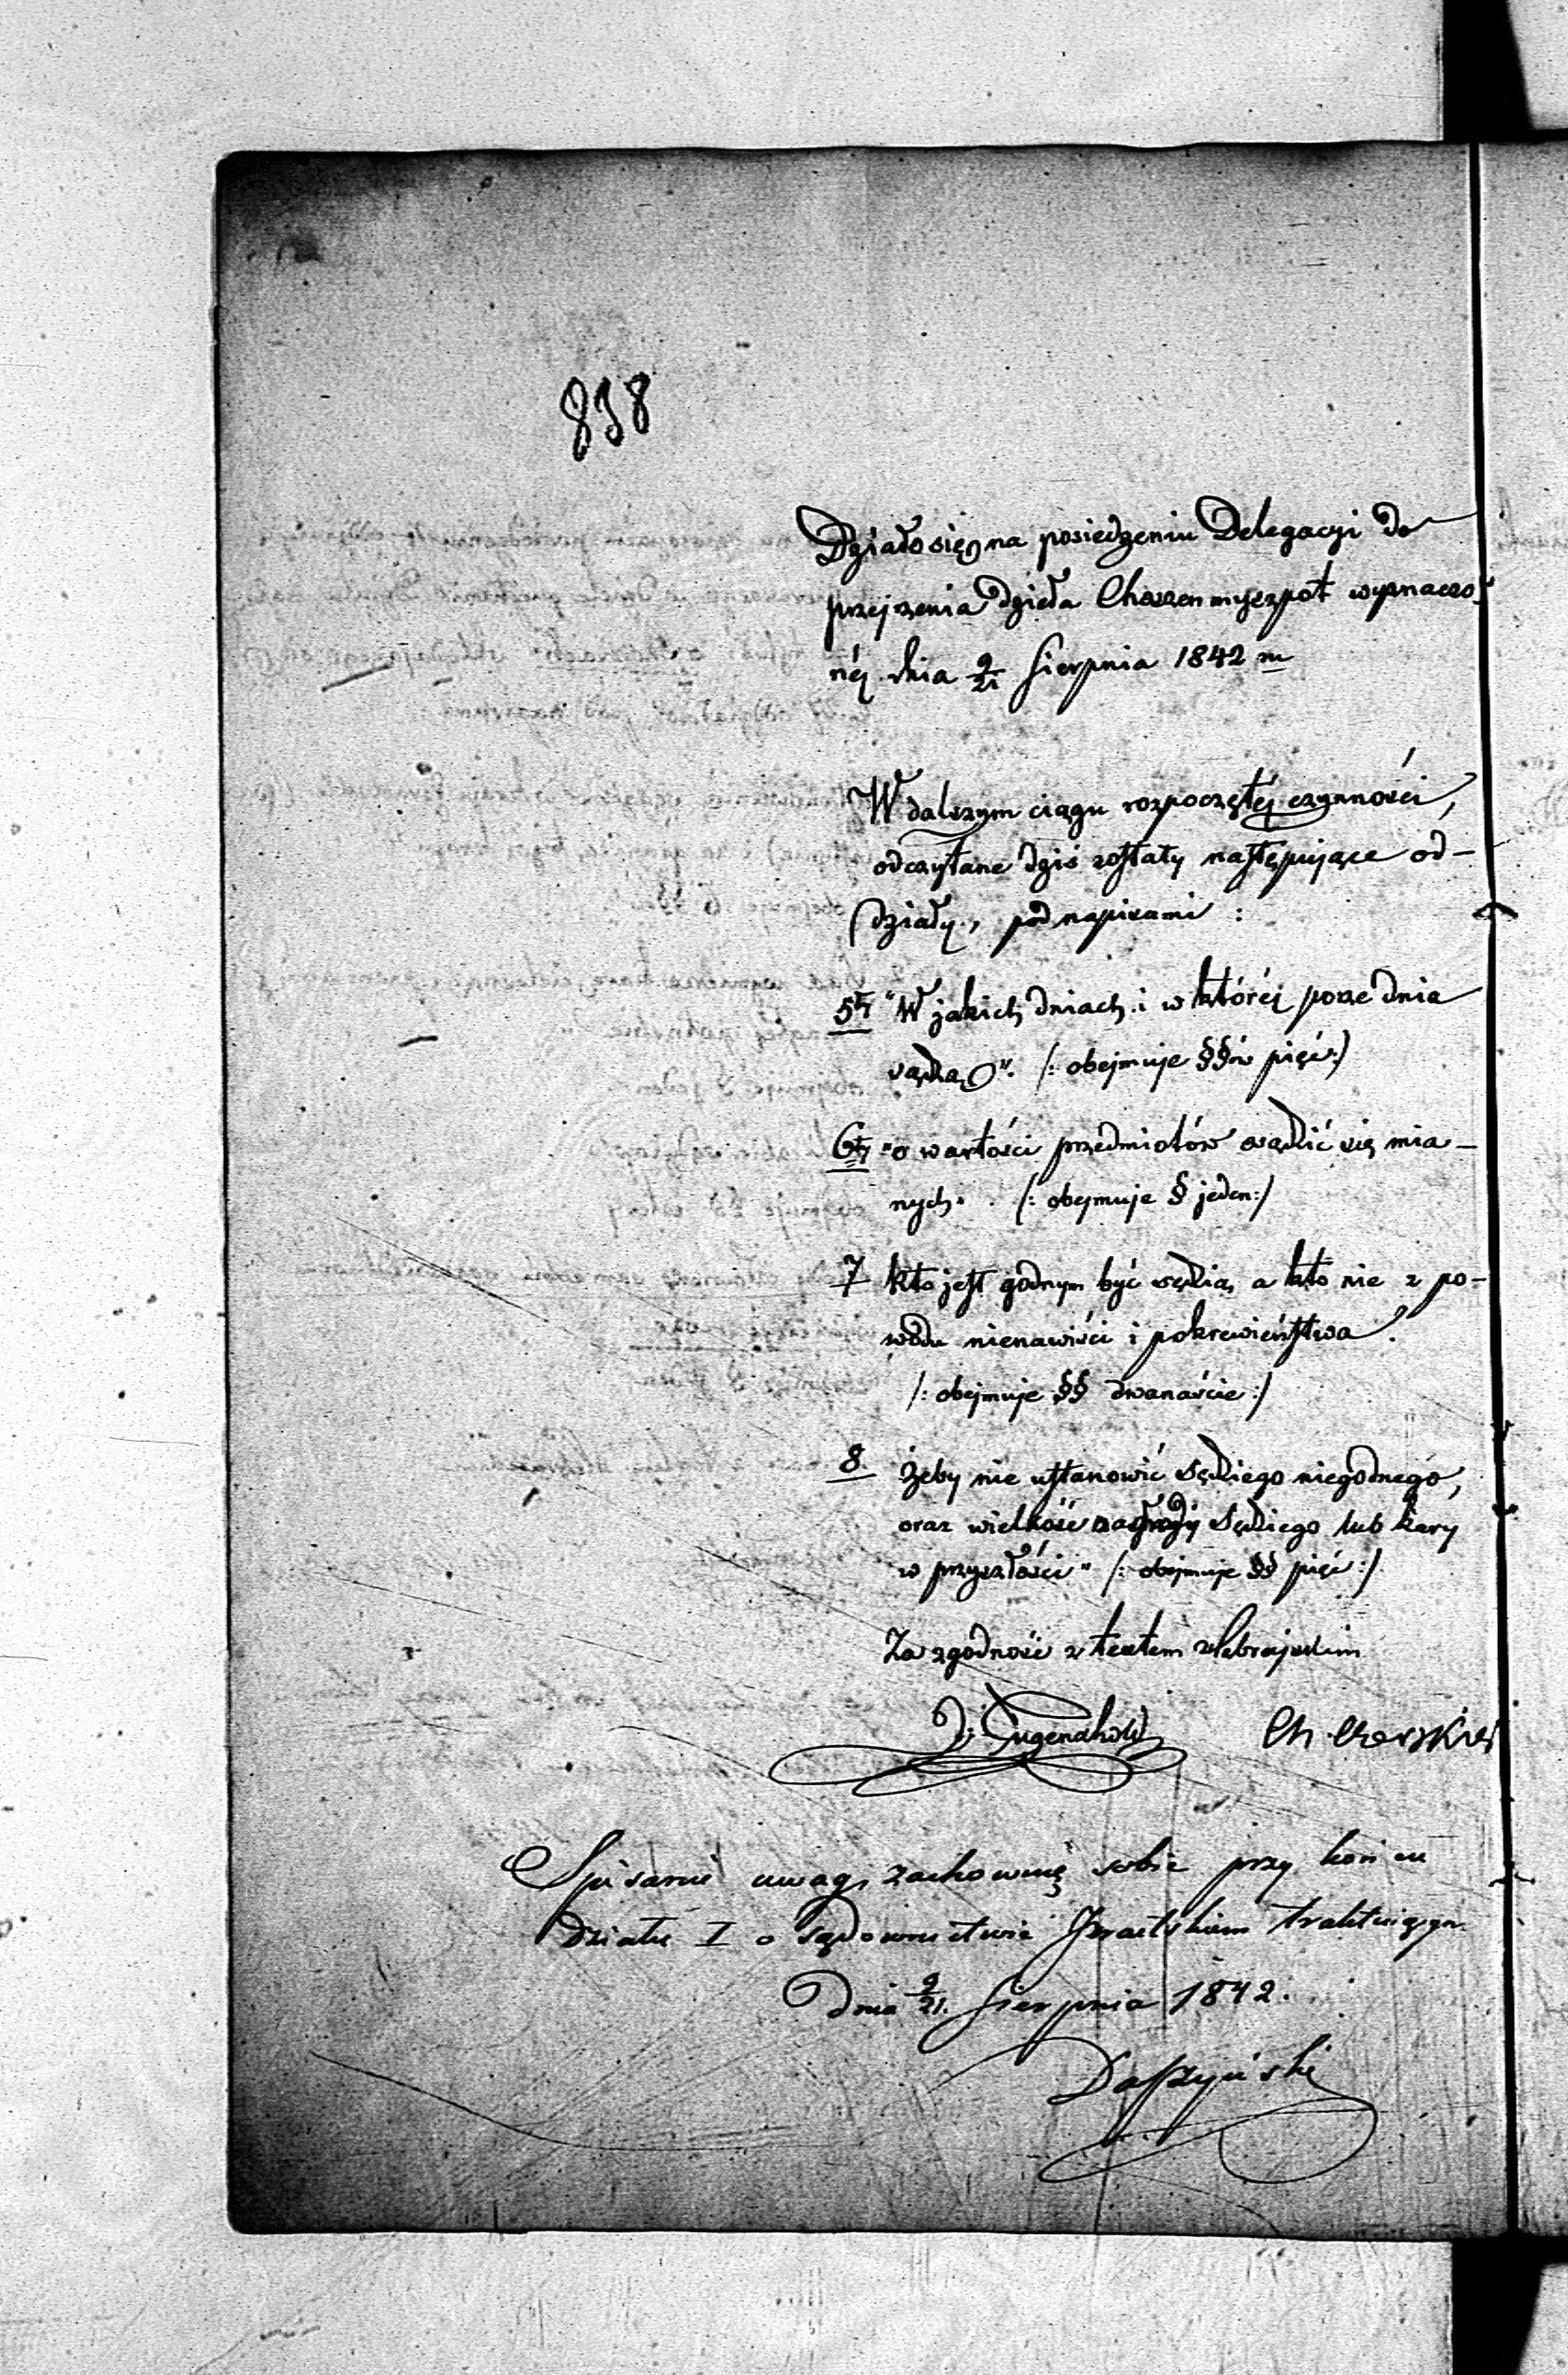 838
Działo się na posiedzeniu Delegacyi do
przejrzenia dzieła Choszen myszpot wyznaczo-
néj dnia 9/21 Sierpnia 1842 r.
W dalszym ciągu rozpoczętéj czynności,
odczytane dziś zostały następujące od-
działy, pod napisami:
5ty "W jakich dniach i w któréj porze dnia
sądzą". /: obejmuje §§ów pięć:/
6ty "o wartości przedmiotów sądzić się mia-
nych" /: obejmuje § jeden:/
7 kto jest godnym być sędzią, a kto nie z po-
wodu nienawiści i pokrewieństwa.
/: obejmuje §§ dwanaście:/
8. żeby nie ustanowić Sędziego niegodnego,
oraz wielkość nagrody Sędziego lub kary
w przyszłości" /: obejmuje §§ pięć:/
Za zgodność z textem Hebrajskim
J. Tugenhold Ch. Czerskier
Spisanie uwag, zachowuję sobie przy końcu
działu I o sądownictwie Izraelskiem traktującym
Dnia 9/21. Sierpnia 1842.
Daszyński